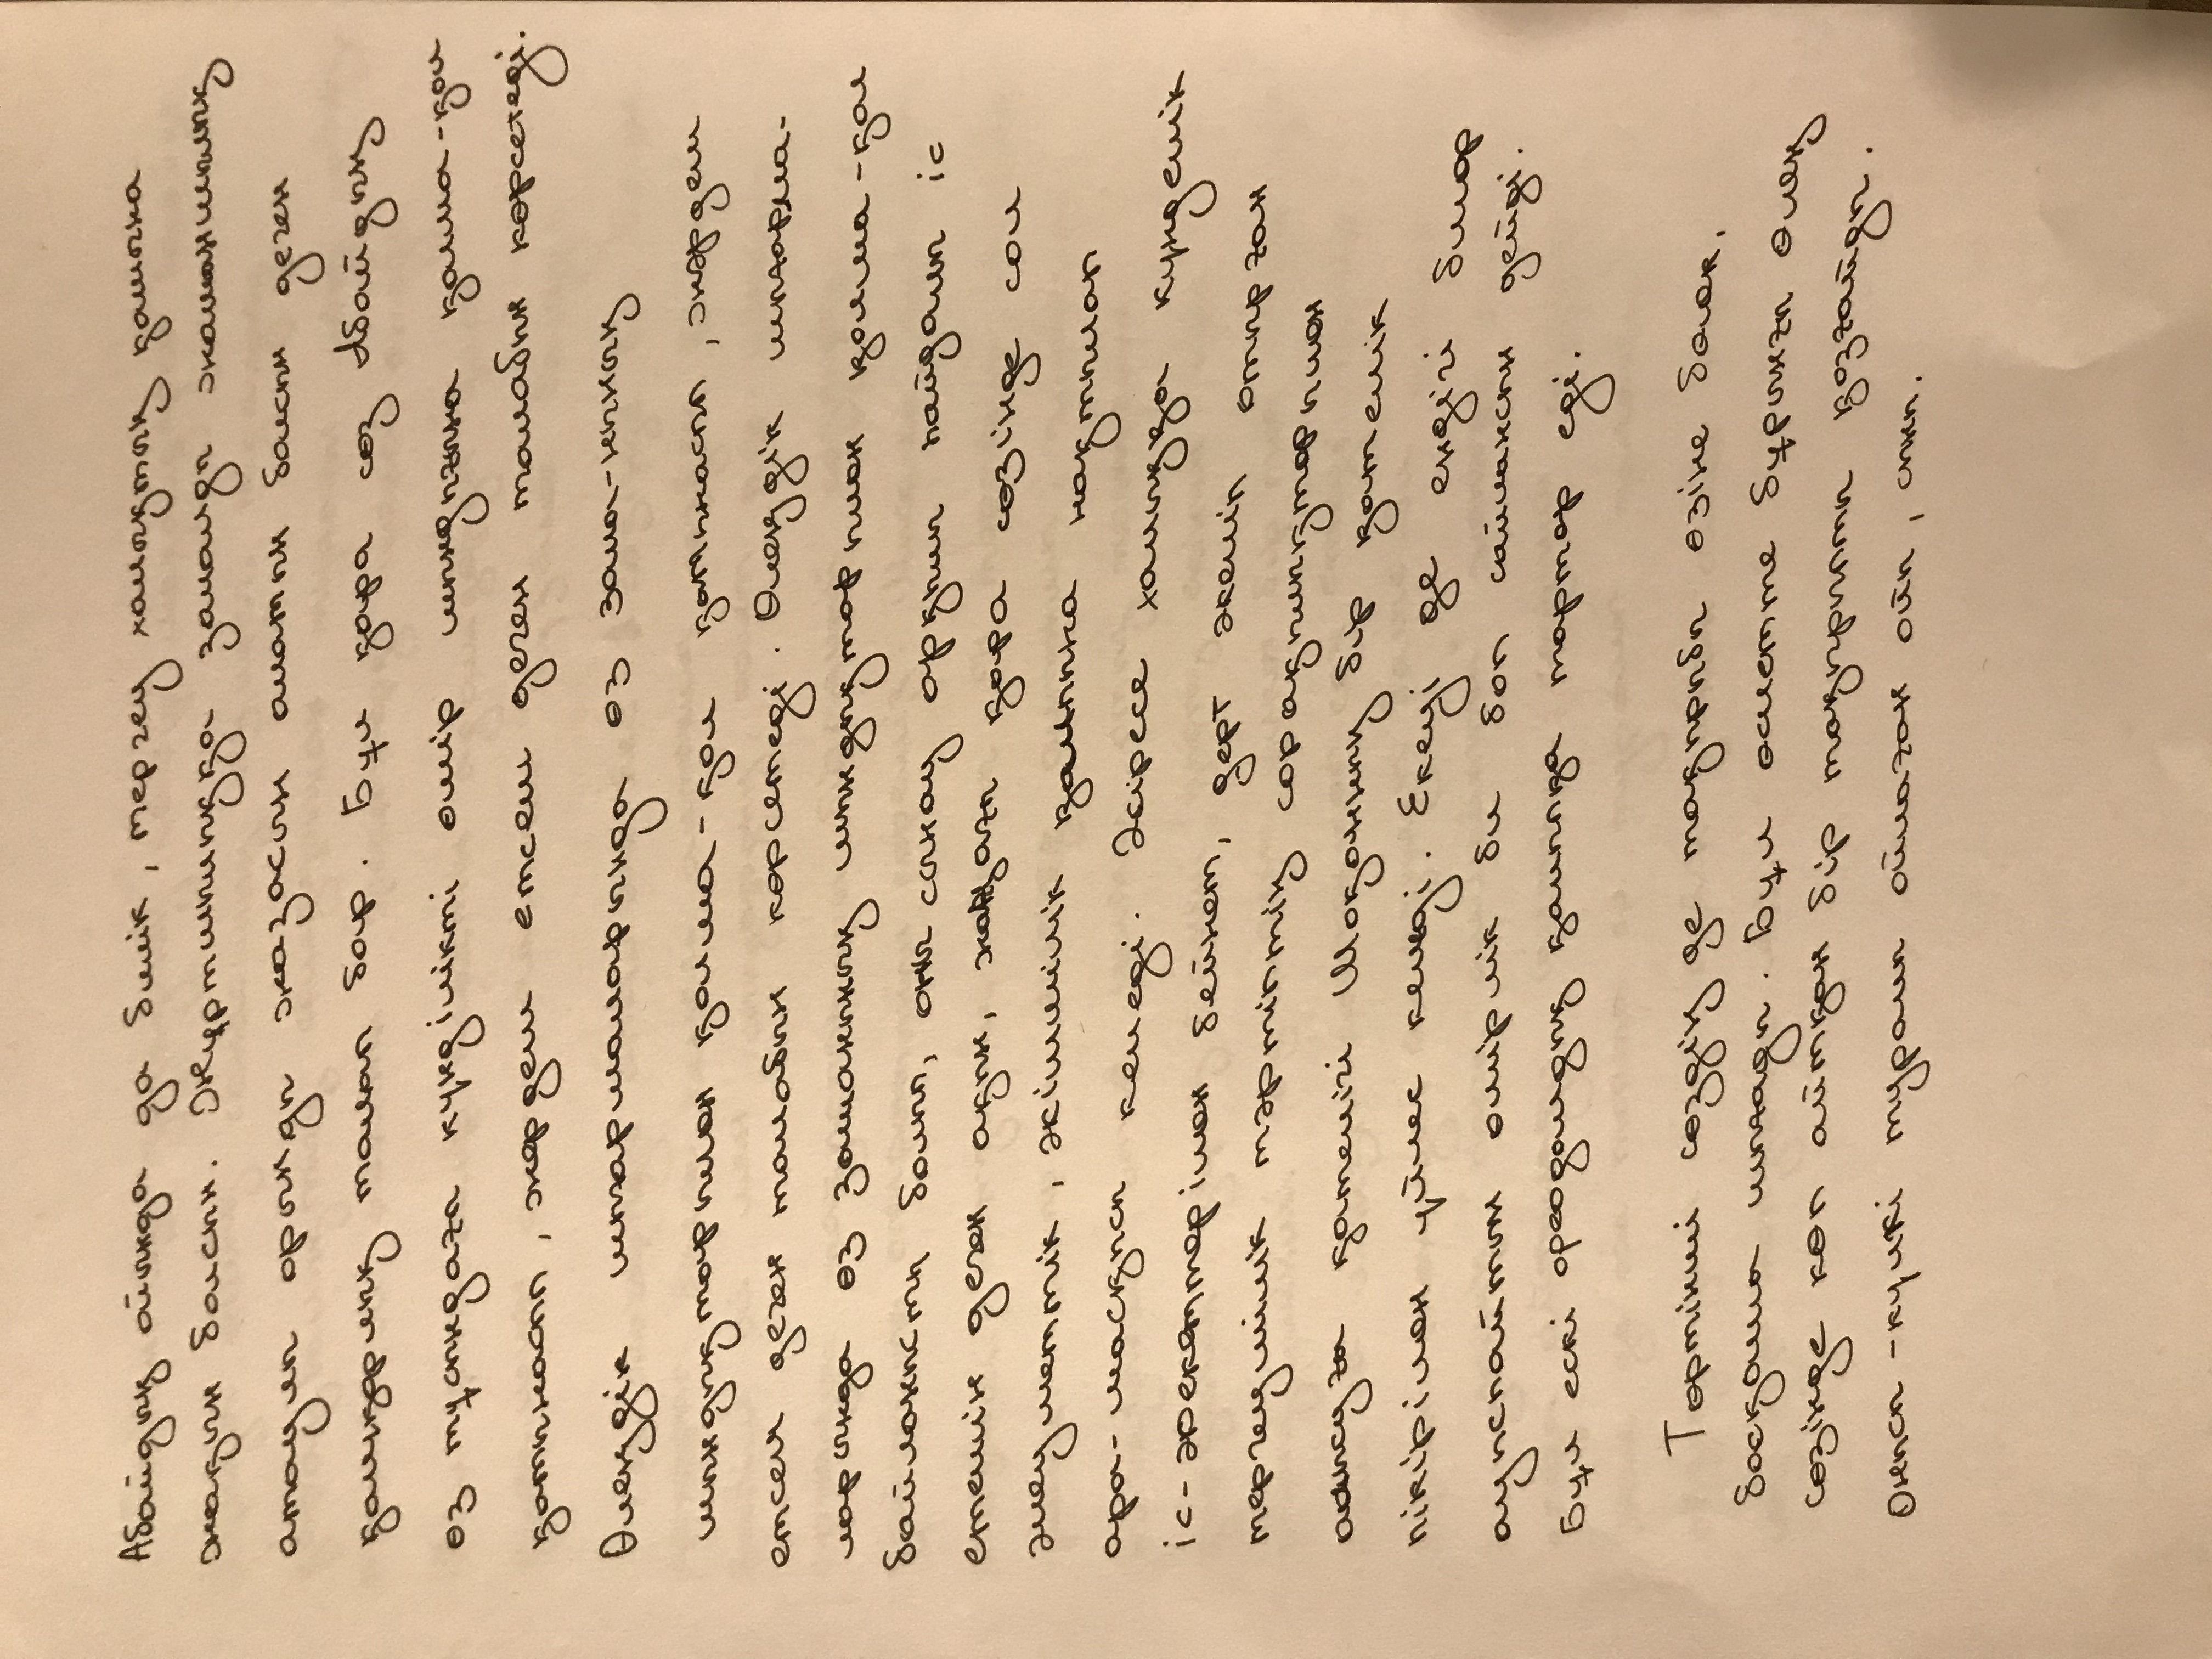 Абайдың ойында да билік, тергеу халықтың қамына
жақын болсын. Жұртшылыққа залалды жамандшылық
атаулы орынды жазасын алатын болсын деген
қамқорлық талап бар. Бұл қара сөз Абайдың
өз тұсындағы күнділікті өмір шындығына қолма-қол
қатынасып, жәрдем етсем деген талабын көрсетеді.
Өлеңдік шығармаларында өз зама-нының
шындықтарымен қолма-қол қатынасып, жәрдем
етсем деген талабын көрсетеді. Өлеңдік шығарма-
ларында өз заманының шындықтарымен қолма-қол
байланысты болып, оны сынау арқылы пайдалы іс
етемін деген ақын, жаңағы қара сөзінде сол
әлеуметтік, әкімшілік қалпына нақтылап
ара-ласқысы келеді. Әсіресе халыққа күнделік
іс-әрекеттерімен бейнет, дерт әкеліп отырған
тергеушілік тәртіптің сорақылықтарымен
алысуға қателігі Шоқанның бір қателік
пікірімен үйлес келеді. Екеуі де ендігі билер
ауыспайтын өмірлік би боп сайлансын дейді.
Бұл ескі феодалдық қалыпқа тартар еді.
Төртінші сөздің де тақырыбы өзіне бөлек,
басқаша шығады. Бұл әлетте бұрынғы өлең
сөзінде көп айтқан бір тақырыпты қозғайды.
Онысы-күлкі туралы ойлаған ойы, сыны.